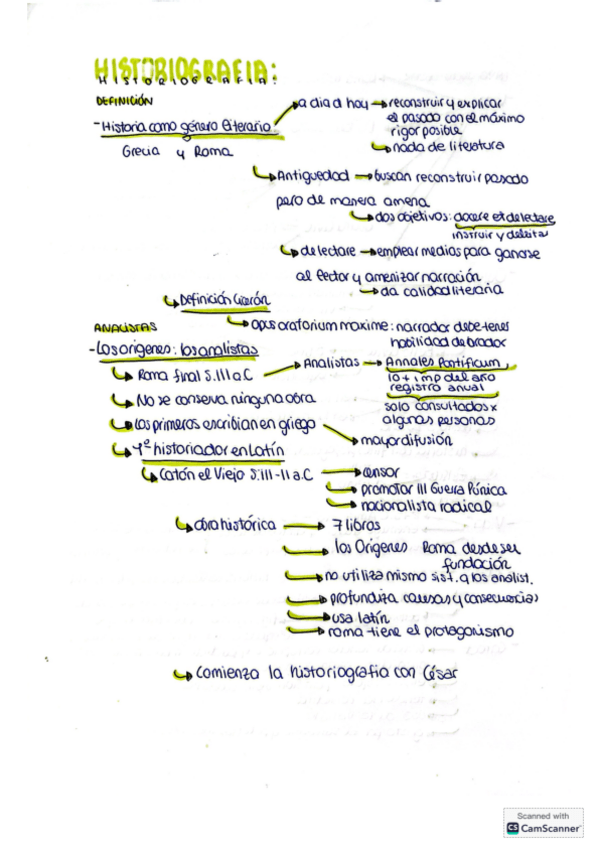 HISTORIOGRAFIA:
HISTORIOGRAFIA:
DEFINICIÓN
- Historia como género literario → a dia d hoy → reconstruir y explicar
el pasado con el máximo
rigor posible
→ nada de literatura
Grecia y Roma
→ Antiguedad → buscan reconstruir pasado
pero de manera amena
→ dos objetivos: docere et delectare
instruir y deleitar
→ delectare → emplear medios para ganarse
al lector y amenizar narración
→ da calidad literaria
→ Definición Cicerón
→ opus oratorium maxime: narrador debe tener
habilidad de orador
ANALISTAS
- Los orígenes: los analistas
→ Roma final S.III a C → Analistas → Annales Pontificum
10 + imp del año
registro anual
→ No se conserva ninguna obra
solo consultados x
algunas personas
→ Los primeros escribian en griego → mayor difusión
→ 1º historiador en Latín
→ Catón el Viejo S.III-II a.C → censor
→ promotor III Guerra Púnica
→ nacionalista radical
→ obra histórica → 7 libros
→ los Orígenes Roma desde ser
fundación
→ no utiliza mismo sist. q los analist.
→ profundiza causas y consecuencias
→ usa latín
→ roma tiene el protagonismo
→ comienza la historiografia con César
Scanned with
CS CamScanner